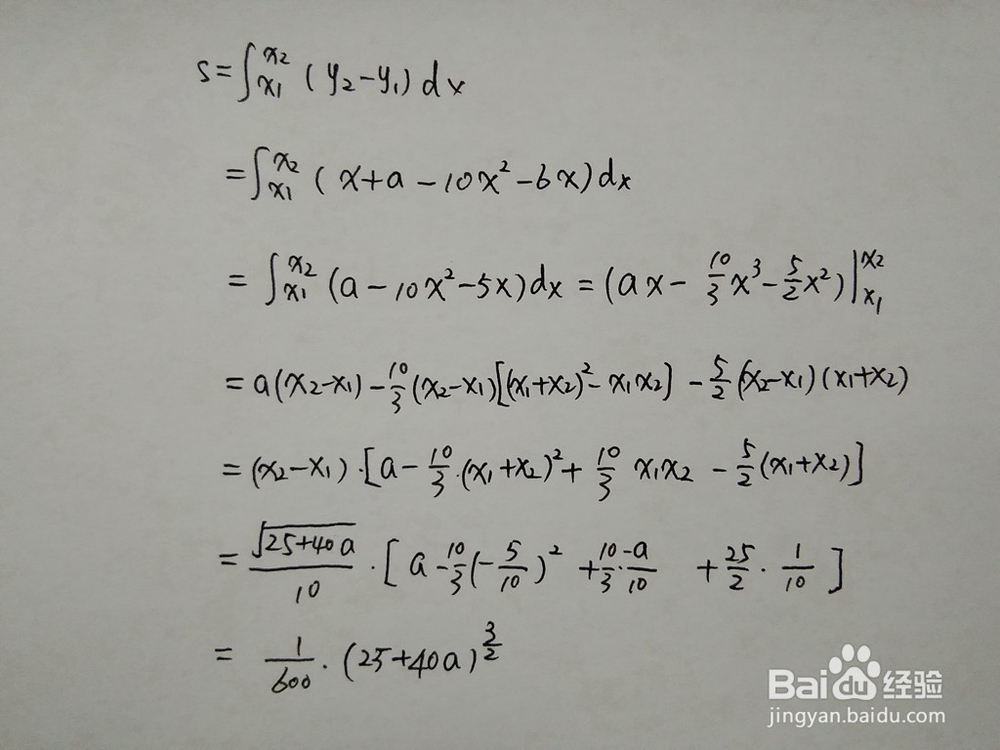 S=∫_{x1}^{x2} (y₂-y₁) dx
=∫_{x1}^{x2} (x+a-10x²-6x)dx
=∫_{x1}^{x2} (a-10x²-5x)dx=(ax-\frac{10}{3}x³-\frac{5}{2}x²)|_{x1}^{x2}
=a(x2-x1)-\frac{10}{3}(x2-x1)[(x1+x2)²-x1x2]-\frac{5}{2}(x2-x1)(x1+x2)
=(x2-x1)·[a-\frac{10}{3}·(x1+x2)²+\frac{10}{3} x1x2-\frac{5}{2}(x1+x2)]
=\frac{\sqrt{25+40a}}{10}·[a-\frac{10}{3}(-\frac{5}{10})²+\frac{10}{3}·\frac{-a}{10}+\frac{25}{2}·\frac{1}{10}]
=\frac{1}{600}·(25+40a)^{\frac{3}{2}}
Baidu经验
jingyan.baidu.com